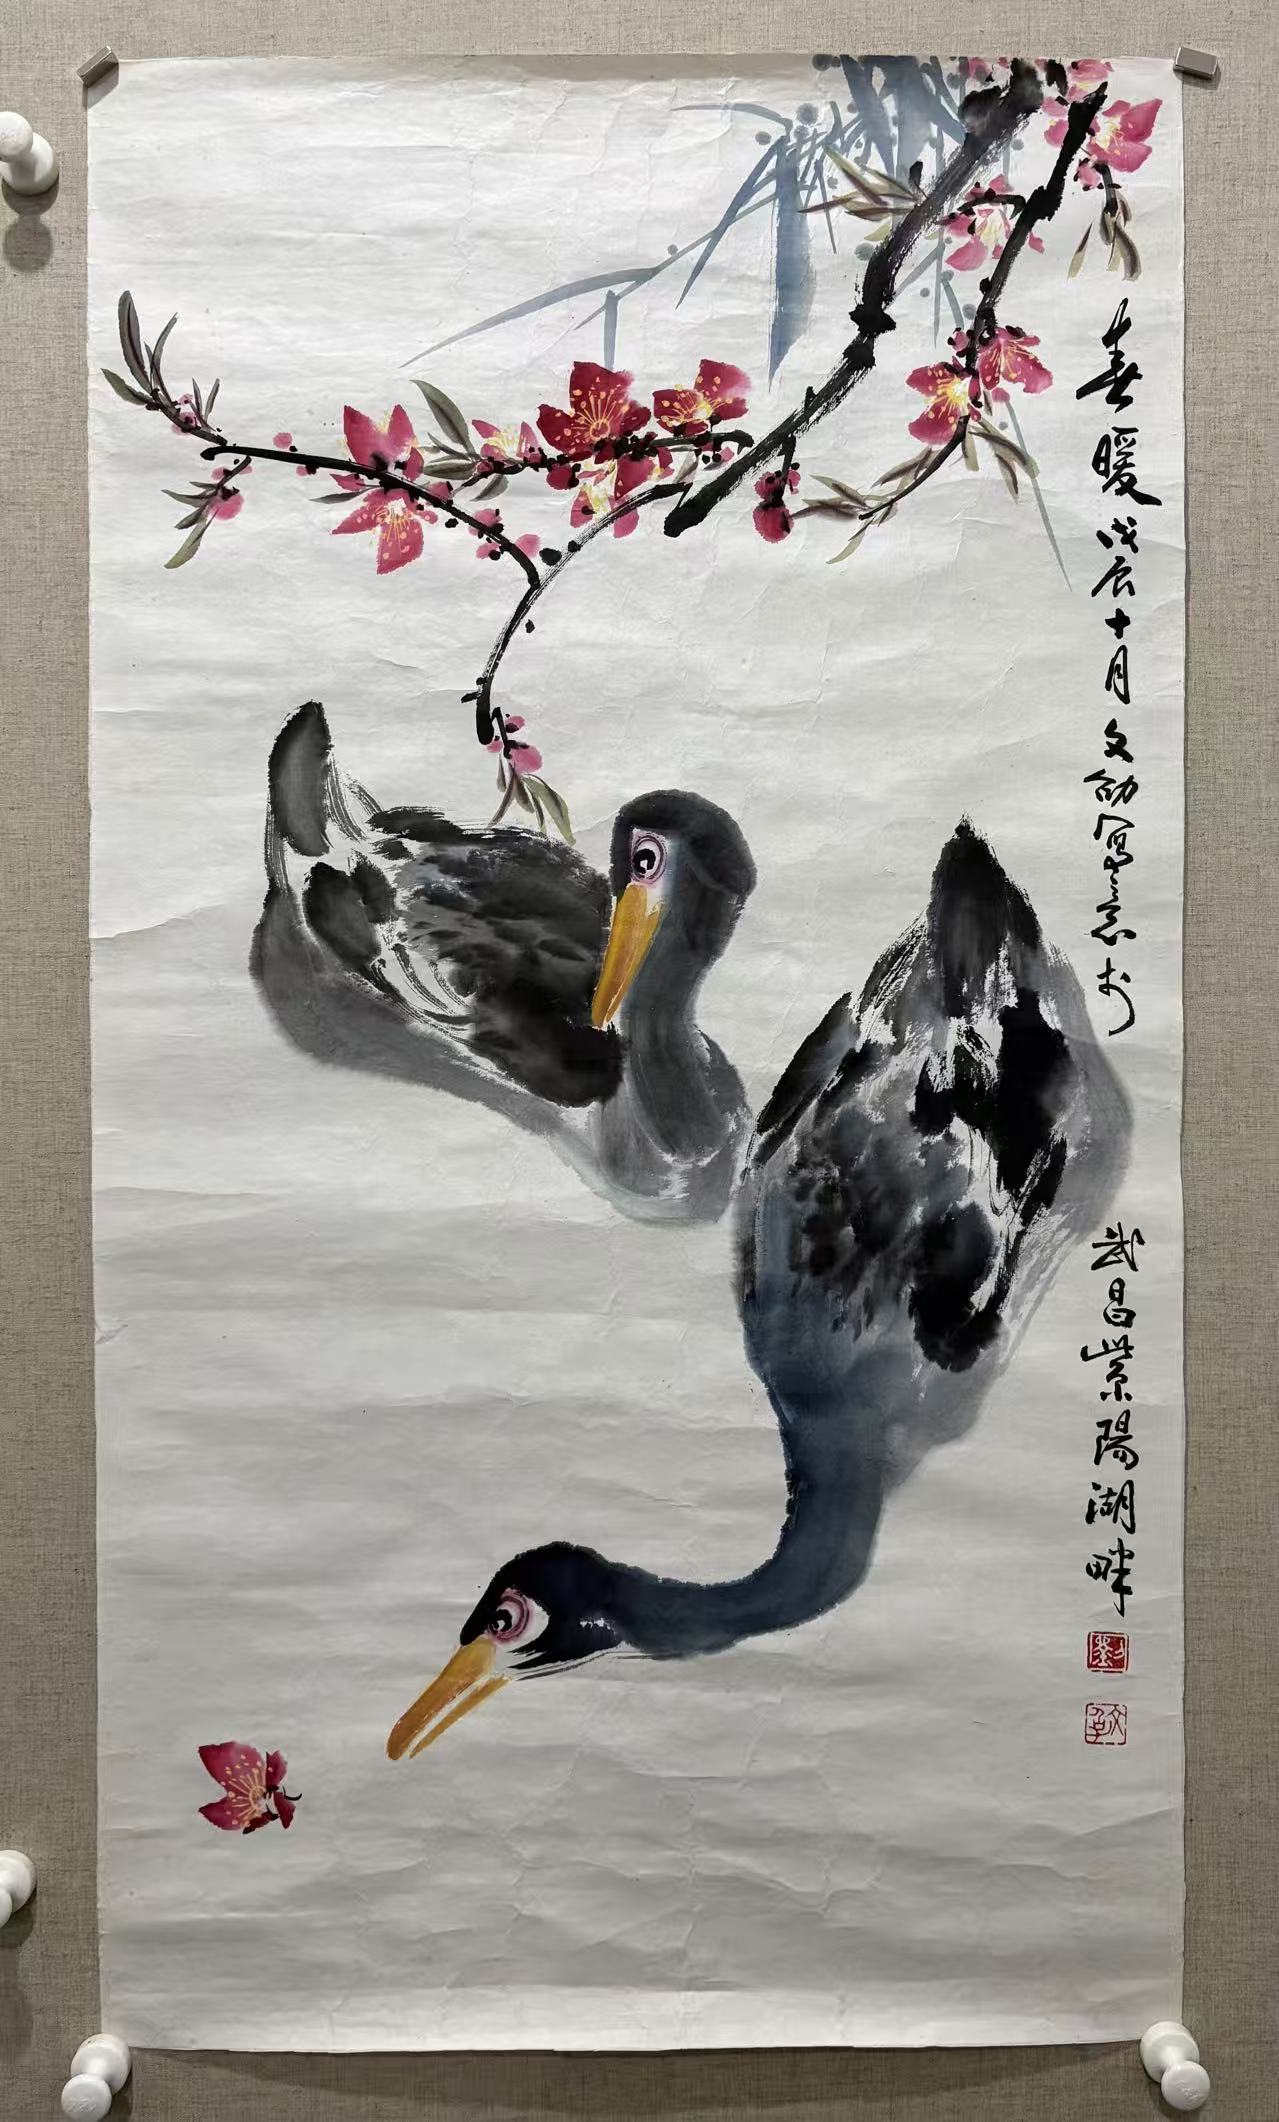 春暖 戊辰十月文劭写意于
武昌紫陽湖畔